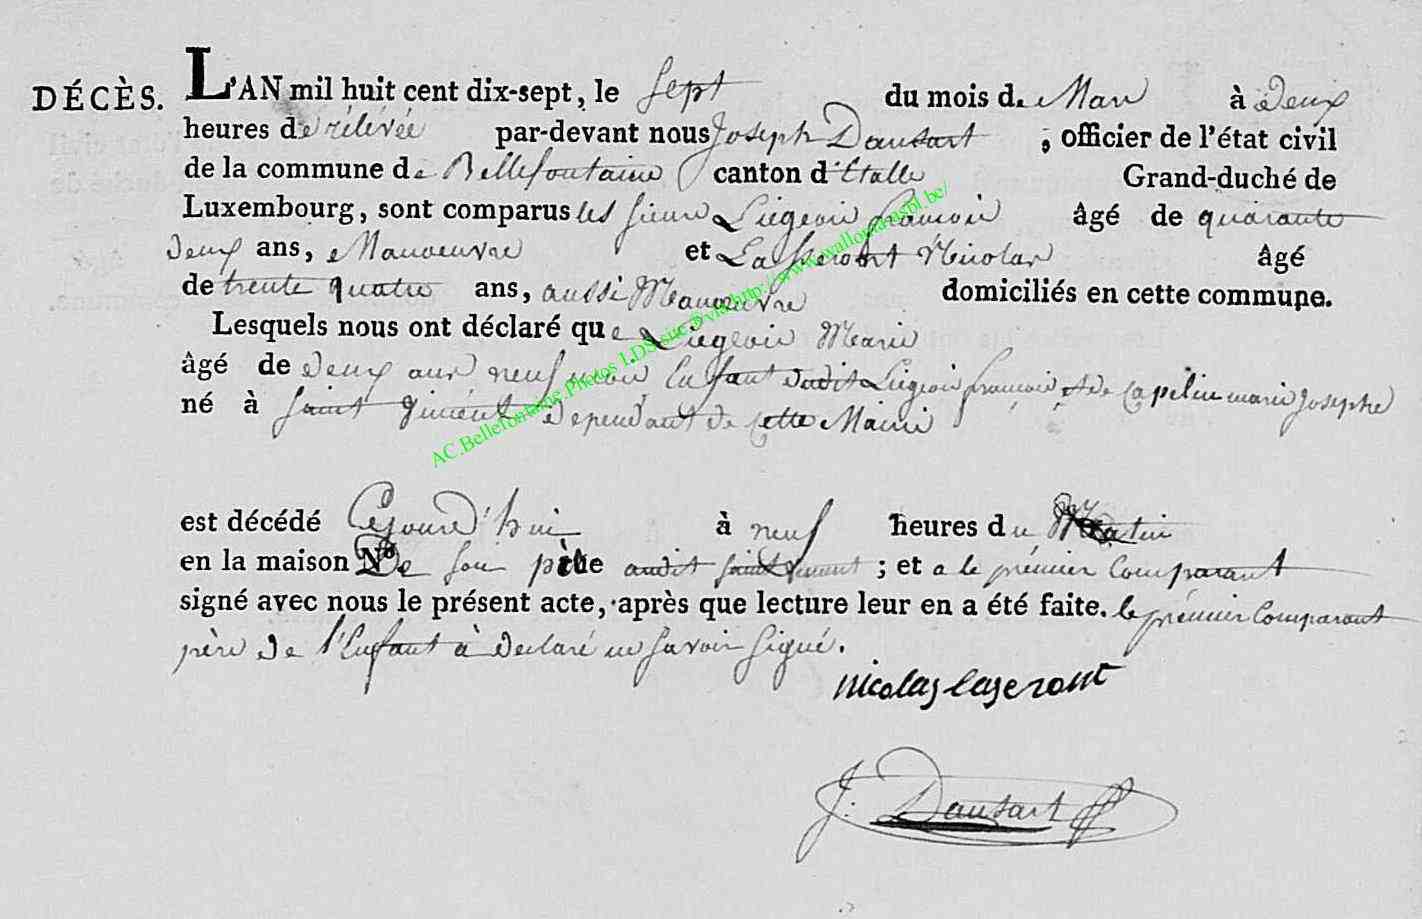 DÉCÈS. L'AN mil huit cent dix-sept, le sept du mois de Mars à deux
heures de rélévée par-devant nous Joseph Dausart, officier de l'état civil
de la commune de Bellefontaine canton d'Etalle Grand-duché de
Luxembourg, sont comparus les sieurs Liégeois françois âgé de quarante
deux ans, Manoeuvre et Lasseront Nicolas âgé
de trente quatre ans, aussi Manoeuvre domiciliés en cette commune.
Lesquels nous ont déclaré que Liégeois Marie
âgé de deux ans neuf mois Enfant dudit Liégeois françois et de Capelin marie Josephe
né à saint dependant de cette Mairie
est décédé Cejourd'hui à neuf heures du Matin
en la maison No De son père audit saint ; et a le prémier Comparant
signé avec nous le présent acte, après que lecture leur en a été faite. le prémier Comparant
père de l'Enfant à declaré ne savoir signé.
nicolas laseront
J. Dausart
AC.Bellefontaine.Photos LDS sur @vial http://www.wallonia-asbl.be/